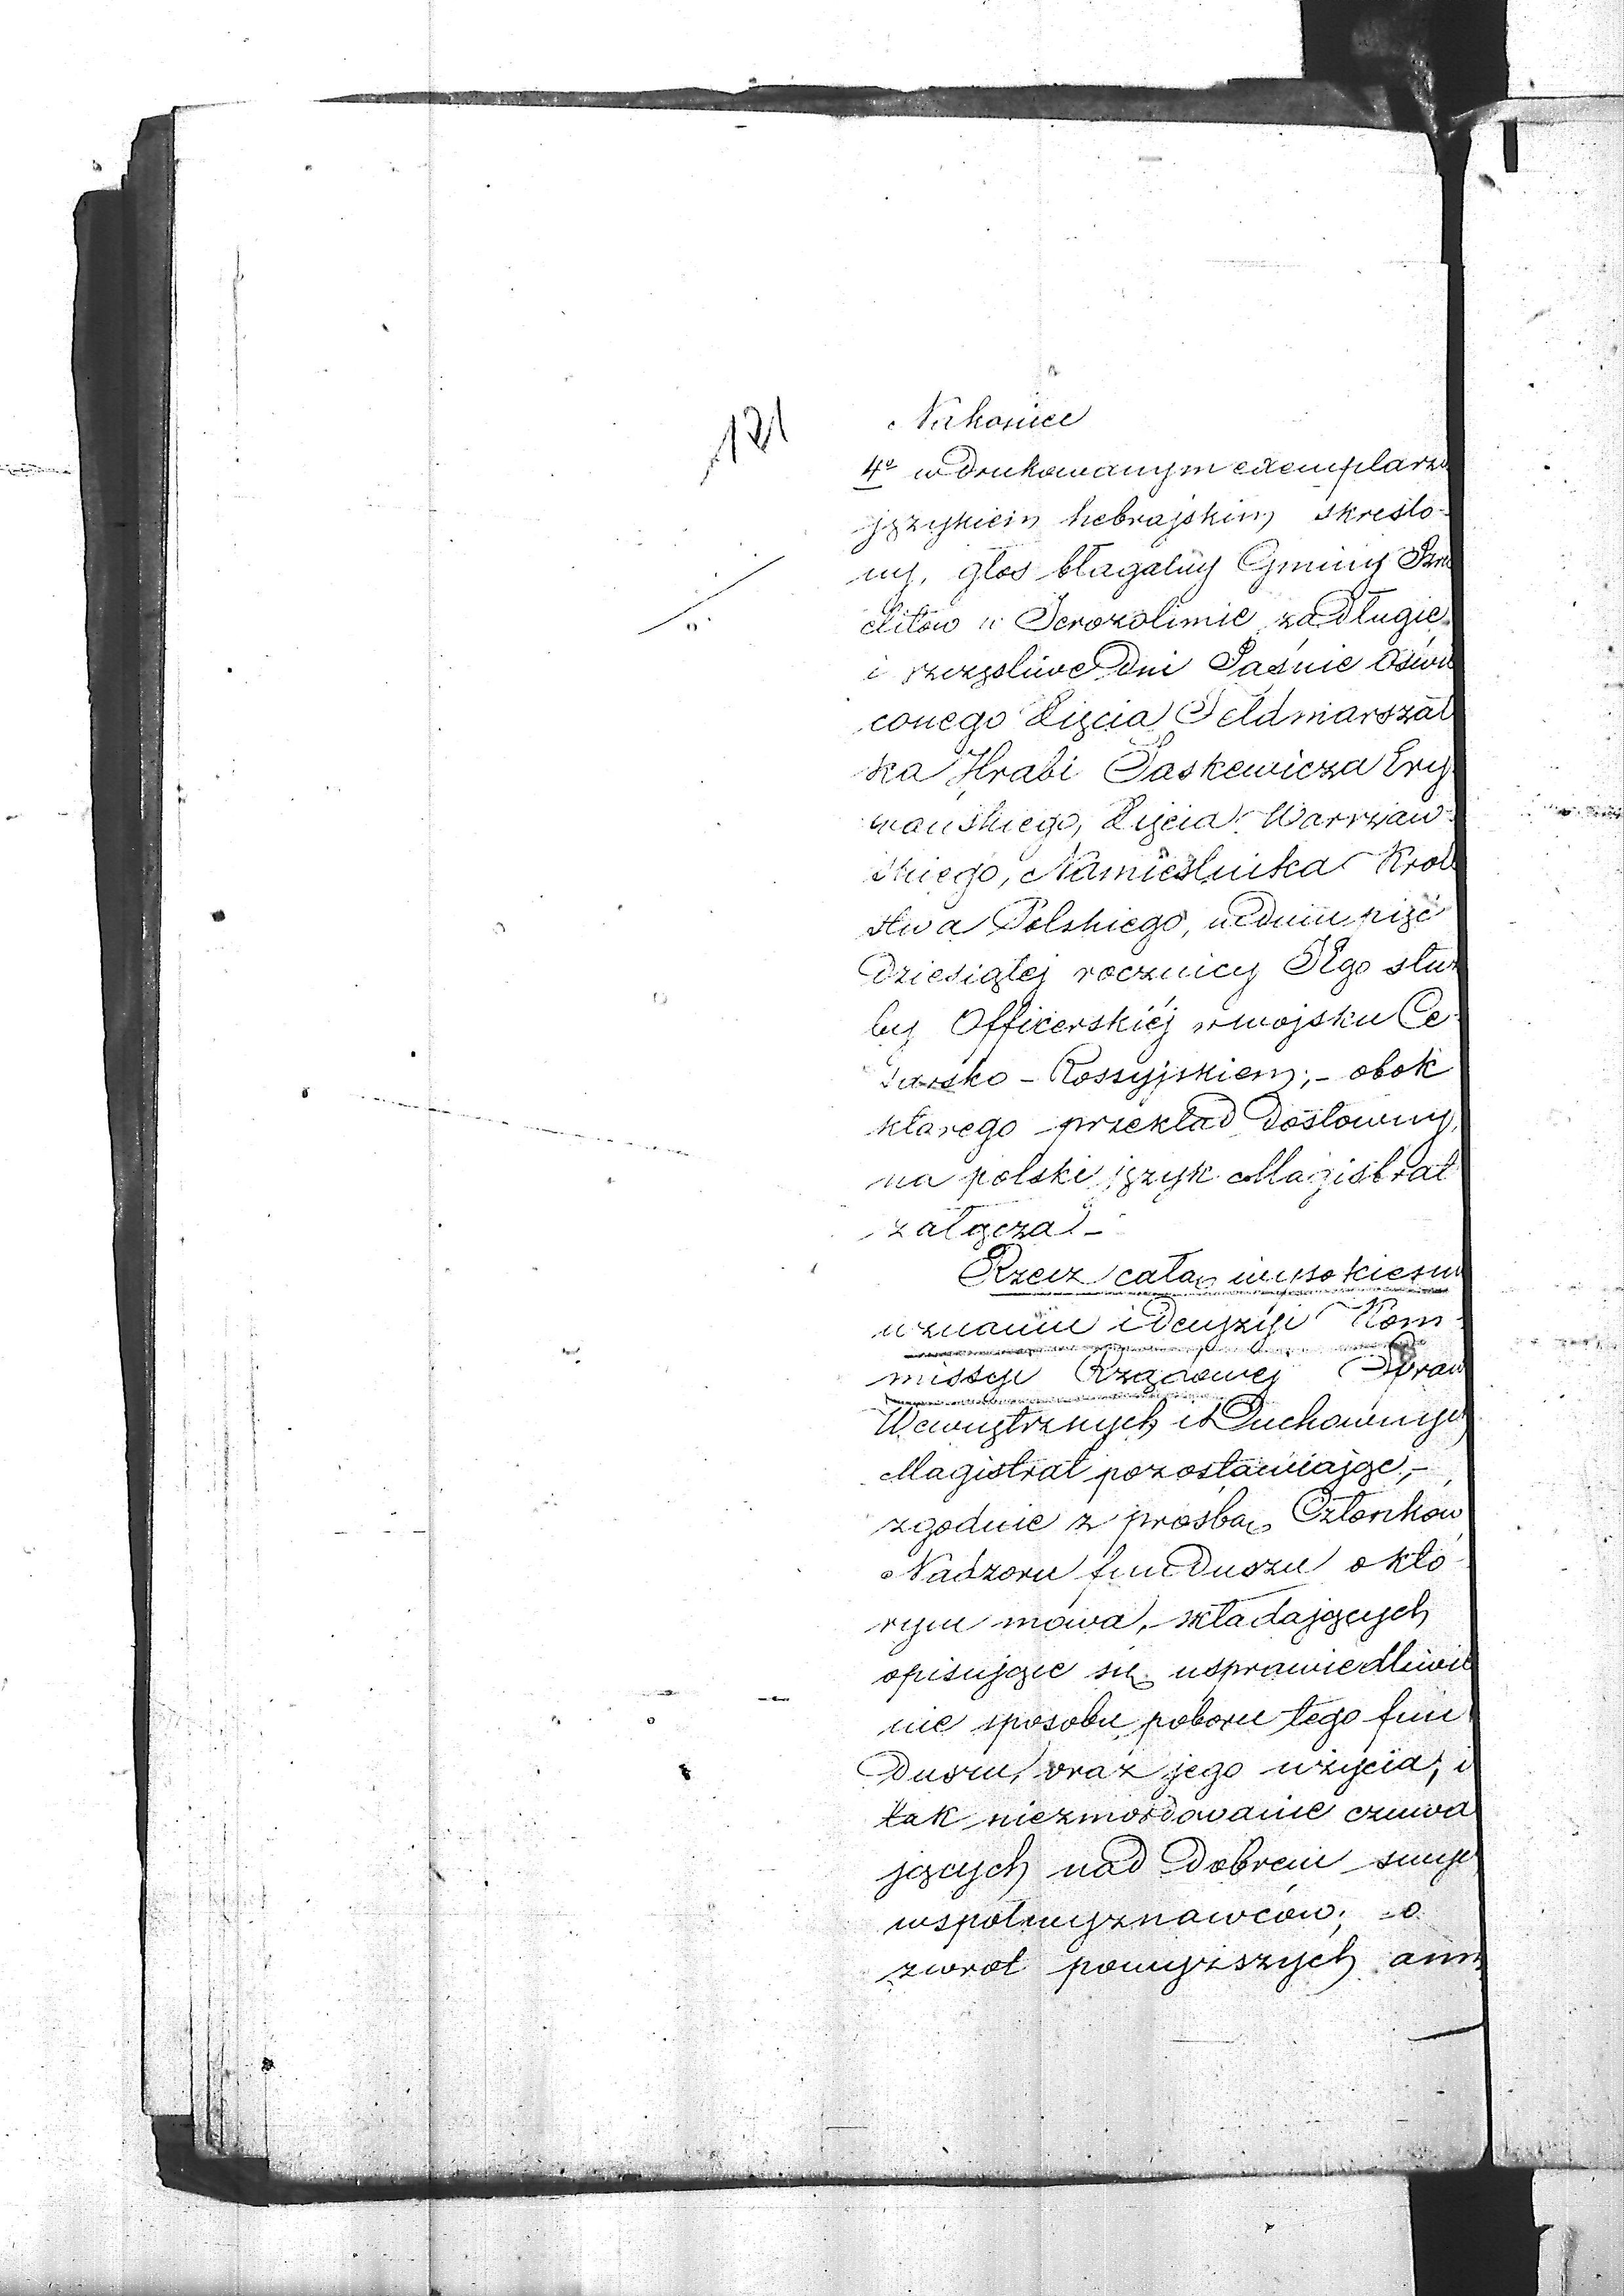 121
Nakoniec
4o w drukowanym exemplarzu
językiem hebrajskim skreślo-
ny, głos błagalny Gminy Izra
elitów w Jerozolimie za długie
i szczęsliwe dni Jaśnie Oświe
conego Xięcia Feldmarszał
ka Hrabi Paskewicza Ery
wańskiego, Xięcia Warszaw-
skiego, Namiestnika Krole
stwa Polskiego, w dniu pięć
dziesiątej rocznicy Jego służ
by Officerskiéj w wojsku Ce-
sarsko - Rossyjskiem; - obok
którego przekład dosłowny,
na polski język Magistrat
załącza. -
Rzecz całą wysokiemu
uznaniu i decyzyi Kom-
missyi Rządowej Spraw
Wewnętrznych i Duchownych
Magistrat pozostawiając, -
zgodnie z prośbą Członków
Nadzoru funduszu o któ-
rym mowa, składających
opisujące się usprawiedliwie
nie sposobu poboru tego fun
duszu, oraz jego użycia, i
tak niezmordowanie czuwa
jących nad dobrem swych
współwyznawców; - o
zwrot powyższych ann